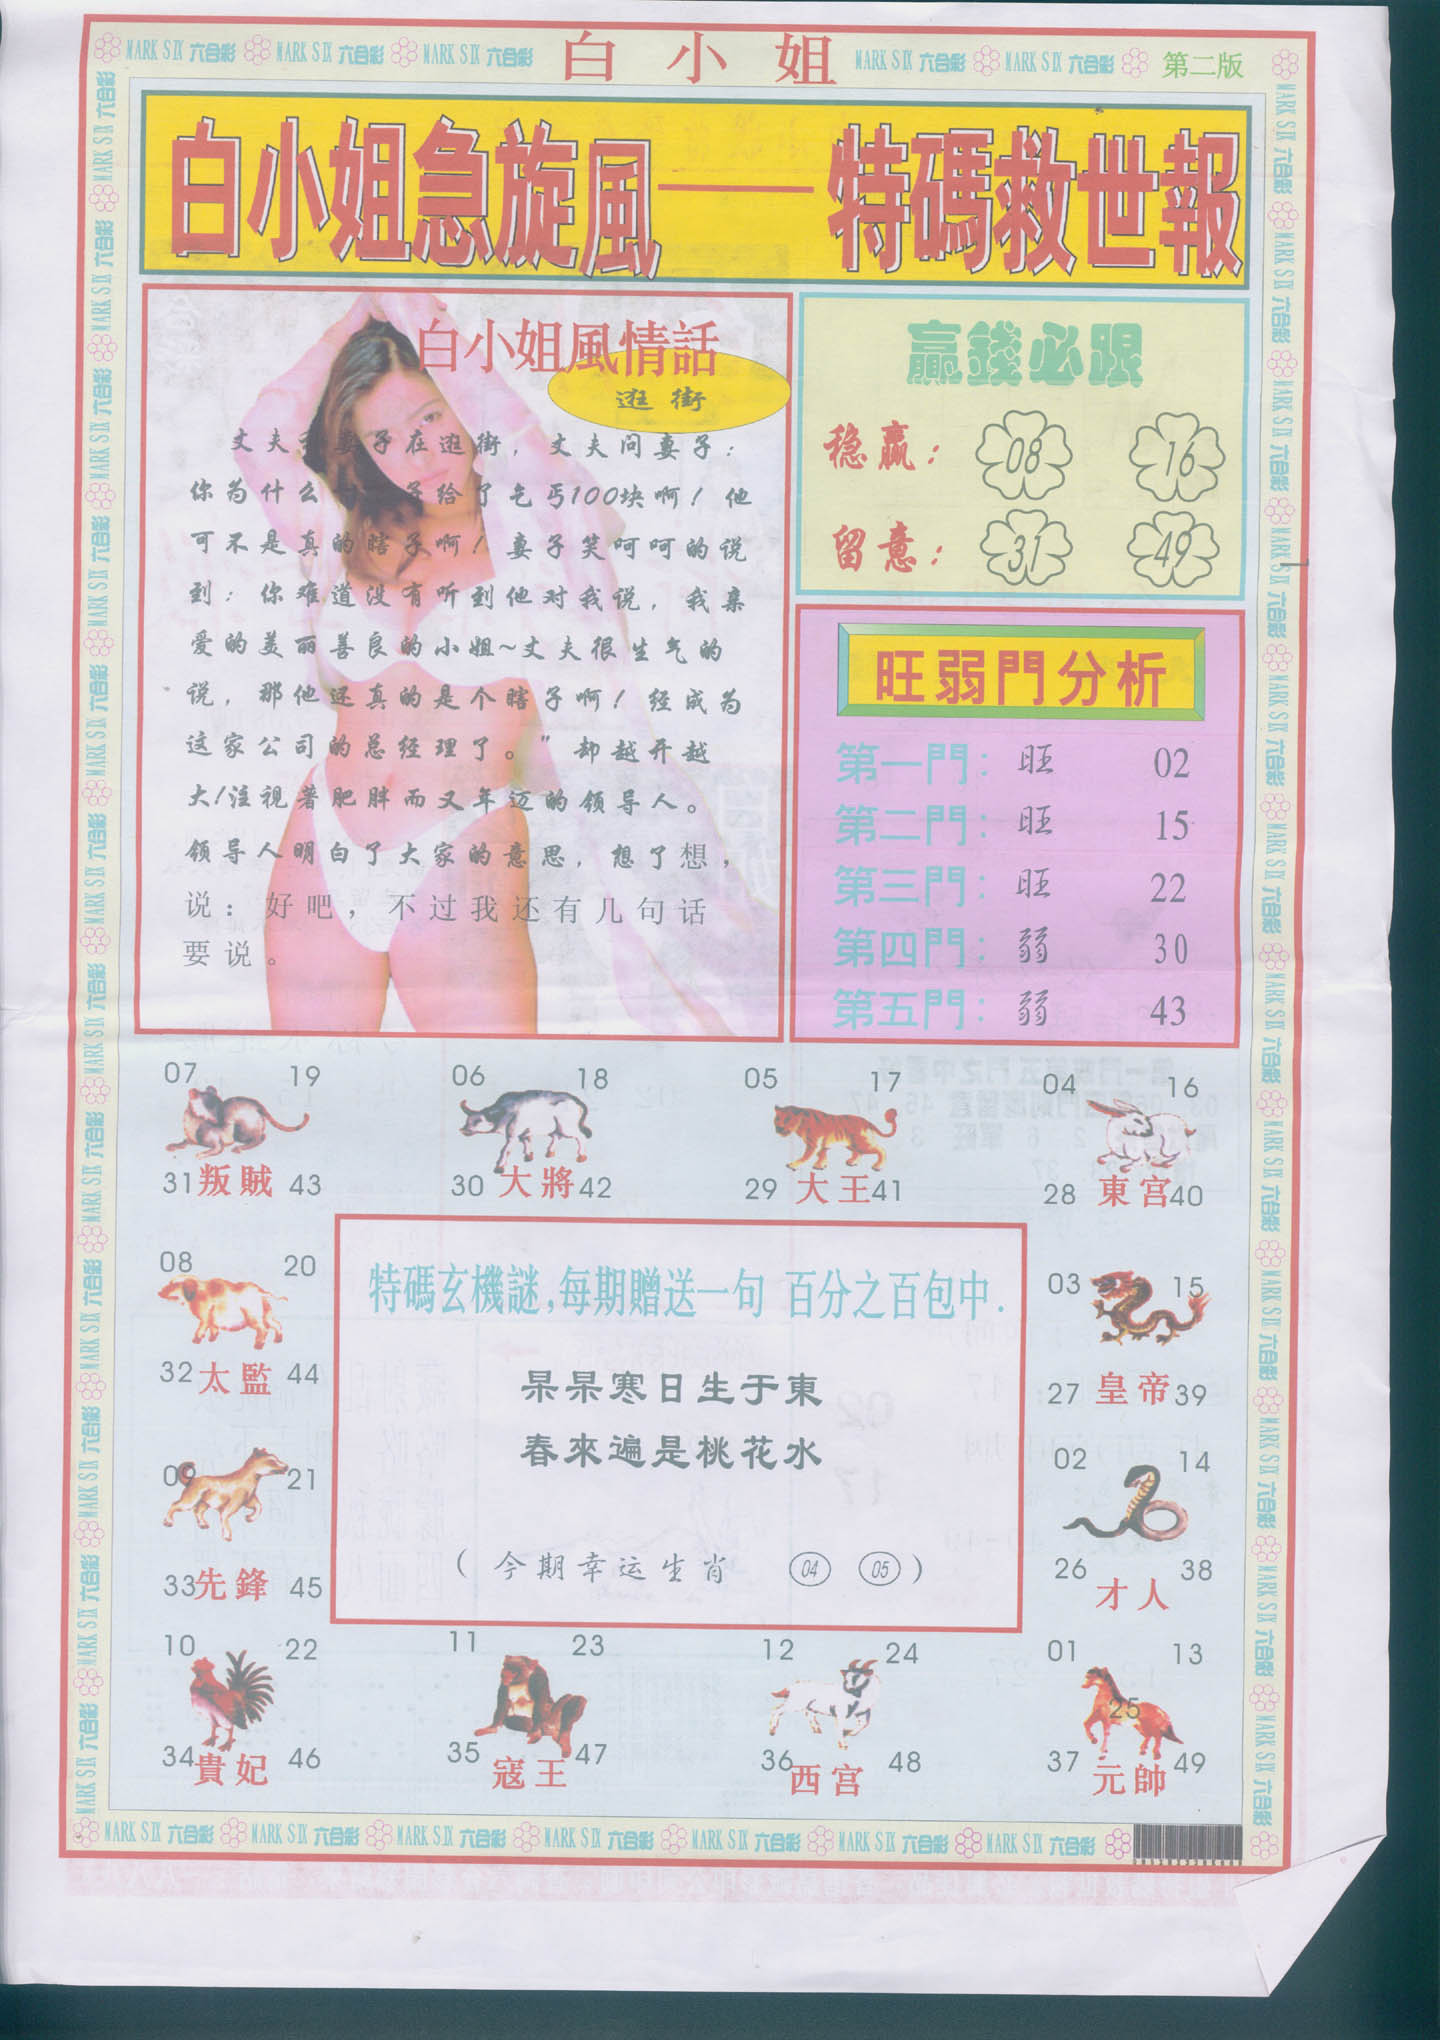 MARK SIX 六合彩 MARK SIX 六合彩 MARK SIX 六合彩 白小姐 MARK SIX 六合彩 MARK SIX 六合彩 第二版
白小姐急旋風——特碼救世報
白小姐風情話
逛街
丈夫 妻子在逛街，丈夫问妻子：
你为什么 子给了乞丐100块啊！他
可不是真的瞎子啊！妻子笑呵呵的说
到：你难道没有听到他对我说，我亲
爱的美丽善良的小姐~丈夫很生气的
说，那他还真的是个瞎子啊！经成为
这家公司的总经理了。”却越开越
大！注視著肥胖而又年迈的领导人。
领导人明白了大家的意思，想了想，
说：好吧，不过我还有几句话
要说。
贏錢必跟
稳赢： 08 16
留意： 31 49
旺弱門分析
第一門：旺 02
第二門：旺 15
第三門：旺 22
第四門：弱 30
第五門：弱 43
07 19
31 叛賊 43
06 18
30 大將 42
05 17
29 大王 41
04 16
28 東宫 40
08 20
32 太監 44
03 15
27 皇帝 39
特碼玄機謎,每期贈送一句 百分之百包中.
杲杲寒日生于東
春來遍是桃花水
（今期幸运生肖 04 05）
09 21
33 先鋒 45
02 14
26 才人 38
10 22
34 貴妃 46
11 23
35 寇王 47
12 24
36 西宫 48
01 13
25
37 元帥 49
MARK SIX 六合彩 MARK SIX 六合彩 MARK SIX 六合彩 MARK SIX 六合彩 MARK SIX 六合彩 MARK SIX 六合彩 MARK SIX 六合彩